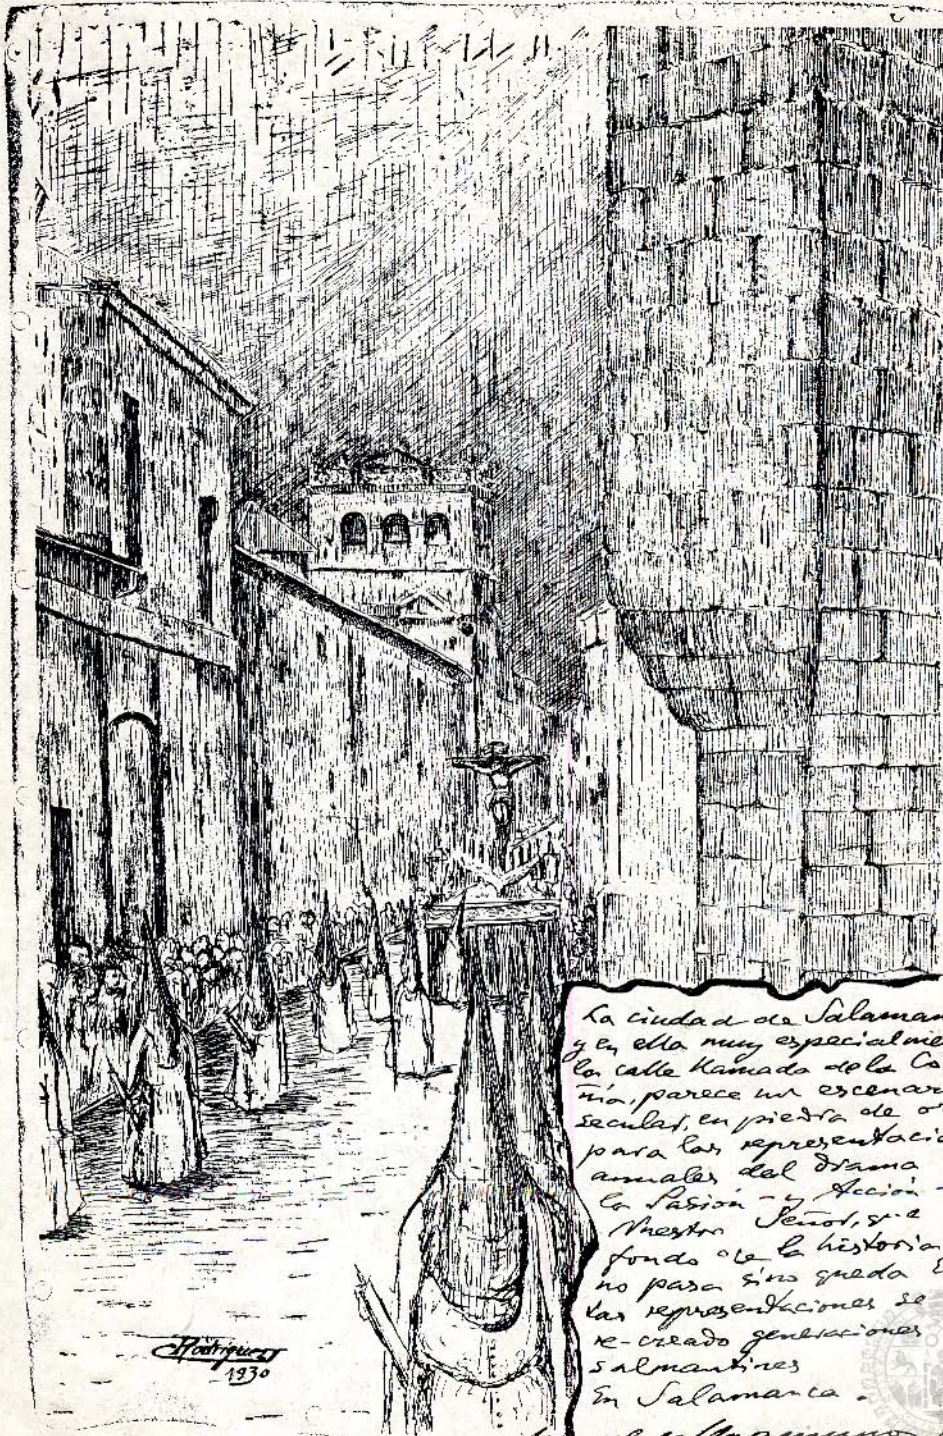 La ciudad de Salaman
y en ella muy especialme
la calle llamada de la Co
ñía, parece un escenar
secular, en piedra de o
para las representacio
anuales del drama
la Pasión - y Acción -
Nuestro Señor, que
fondo de la historia
no pasa sino queda
las representaciones se
re-creado generaciones
salmantinas
En Salamanca.
Rodriguez
1930